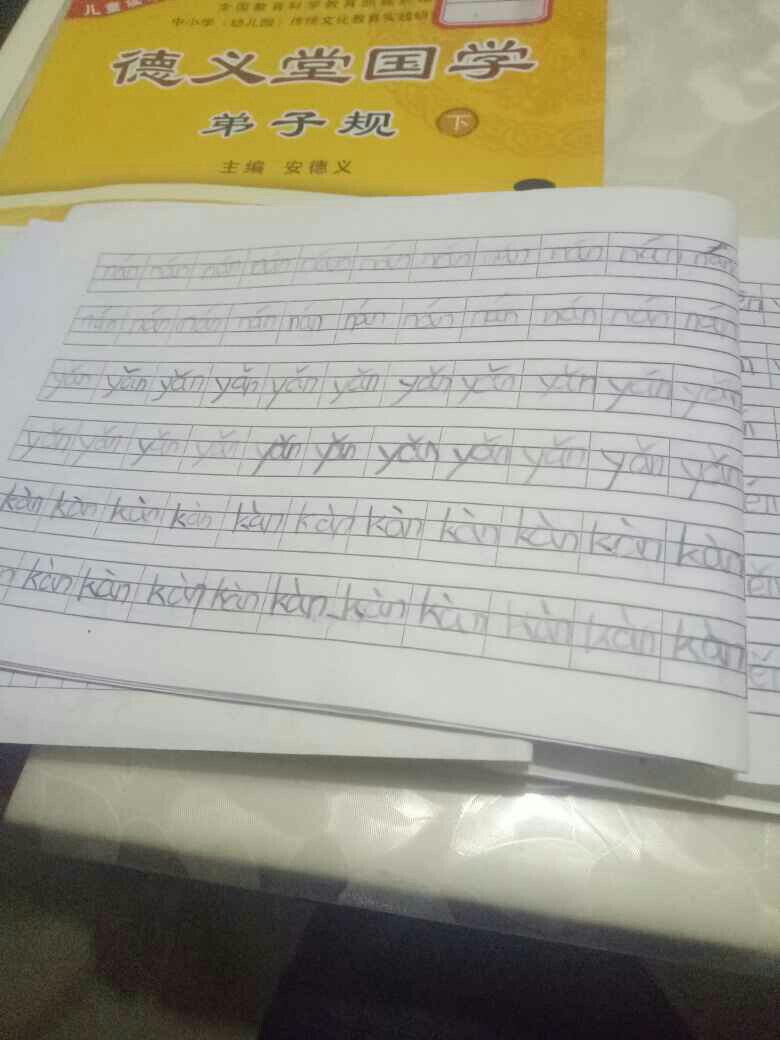 儿童
中小学（幼儿园）传统文化教育实践研
德义堂国学
弟子规 下
主编 安德义
nán nán nán nán nán nán nán nán nán nán nán
nán nán nán nán nán nán nán nán nán nán nán
yǎn yǎn yǎn yǎn yǎn yǎn yǎn yǎn yǎn yǎn yǎn
yǎn yǎn yǎn yǎn yǎn yǎn yǎn yǎn yǎn yǎn yǎn
kàn kàn kàn kàn kàn kàn kàn kàn kàn kàn kàn
n kàn kàn kàn kàn kàn kàn kàn kàn kàn kàn